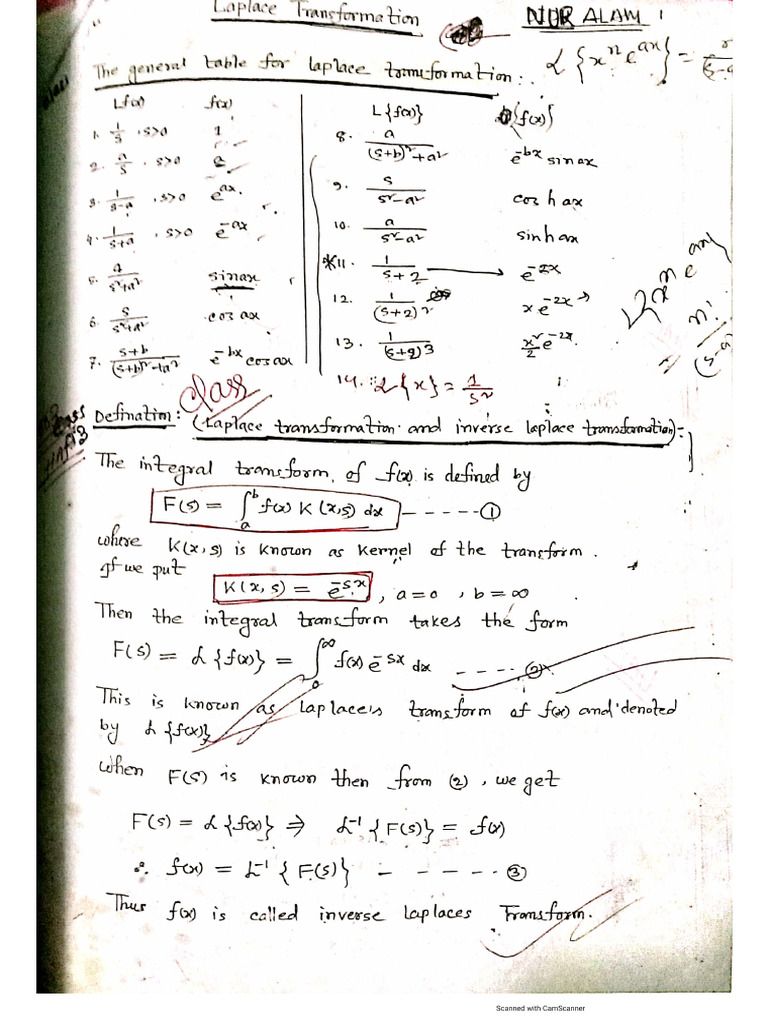 Laplace Transformation
NUR ALAM
The general table for laplace transformation:
L{xⁿe^ax} =
Lf(x) f(x)
1. 1/s , s>0 1
2. a/s , s>0 a
3. 1/(s-a) , s>0 e^ax
4. 1/(s+a) , s>0 e^-ax
5. a/(s²+a²) sinax
6. s/(s²+a²) cosax
7. (s+b)/((s+b)²+a²) e^-bx cosax
L{f(x)} {f(x)}
8. a/((s+b)²+a²) e^-bx sinax
9. s/(s²-a²) coshax
10. a/(s²-a²) sinhax
*11. 1/(s+2) → e^-2x
12. 1/(s+2)² xe^-2x
13. 1/(s+2)³ x²/2 e^-2x
14. L{x} = 1/s²
class
Defination: (Laplace transformation and inverse laplace transformation):-
The integral transform of f(x) is defined by
F(s) = ∫ₐᵇ f(x) K(x,s) dx - - - - - ①
where K(x,s) is known as kernel of the transform.
If we put
K(x,s) = e^-s.x , a=0 , b=∞
Then the integral transform takes the form
F(s) = L{f(x)} = ∫₀^∞ f(x) e^-sx dx - - - - ②
This is known as laplaceis transform of f(x) and denoted
by L{f(x)}
When F(s) is known then from ②, we get
F(s) = L{f(x)} ⇒ L⁻¹{F(s)} = f(x)
∴ f(x) = L⁻¹{F(s)} - - - - - - ③
Thus f(x) is called inverse laplaces Transform.
Scanned with CamScanner